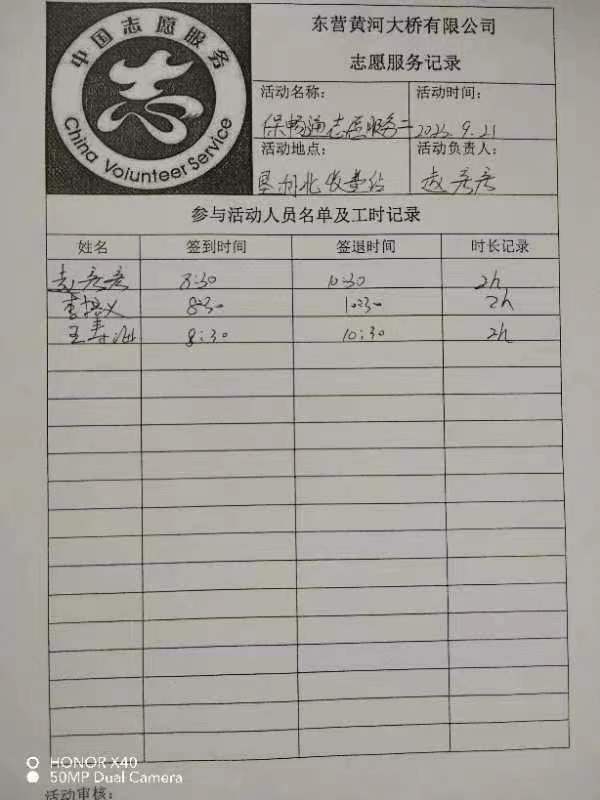 中国志愿服务
China Volunteer Service
东营黄河大桥有限公司
志愿服务记录
活动名称：
保畅通志愿服务二
活动时间：
2023.9.21
活动地点：
垦利北收费站
活动负责人：
赵彦彦
参与活动人员名单及工时记录
姓名 签到时间 签退时间 时长记录
赵彦彦 8:30 10:30 2h
李培义 8:30 10:30 2h
王寿 8:30 10:30 2h
HONOR X40
50MP Dual Camera
活动审核：